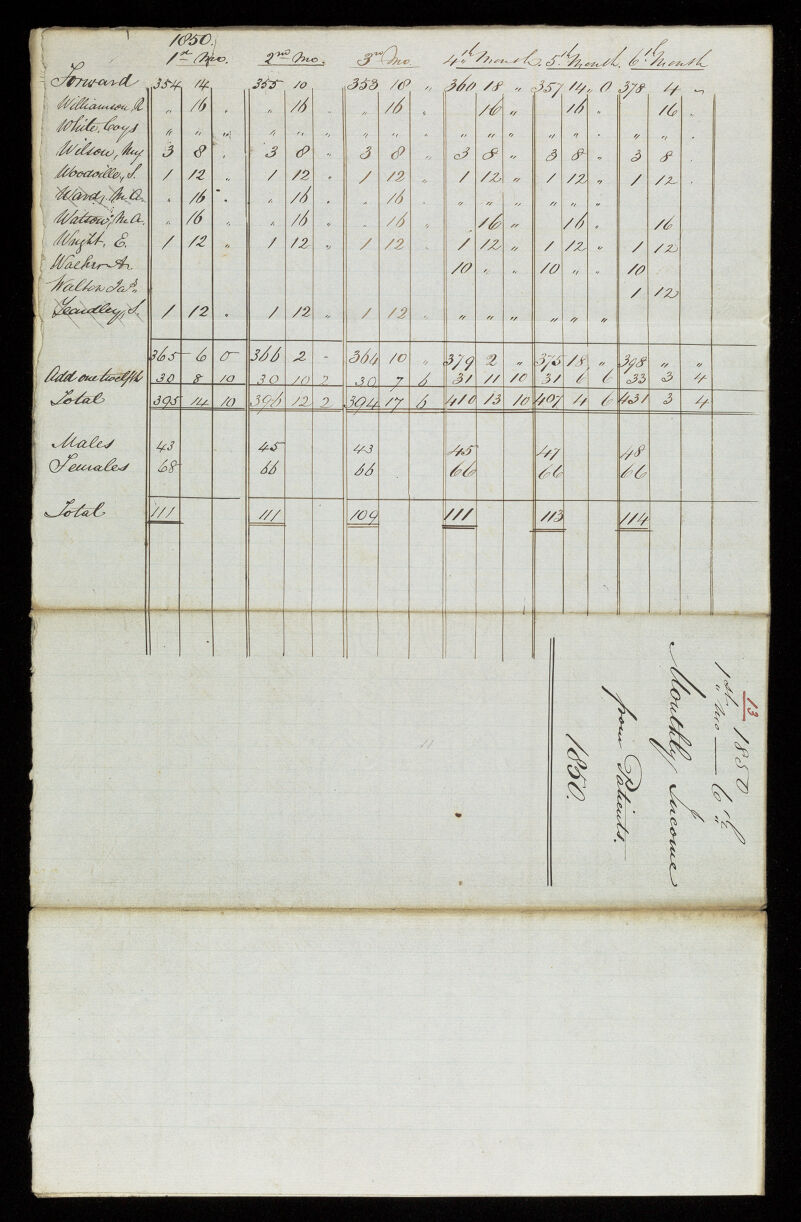 1850.
1st Mo. 2nd Mo. 3rd Mo. 4th Month. 5th Month. 6th Month
Forward 354 14 355 10 353 18 " 360 18 " 357 14 " 0 378 4 "
Williamson, R " 16 " " 16 " " 16 " 16 " 16 " 16 "
White, Coys " " " " " " " " " " " " " " " " " "
Wilson, My 3 8 " 3 8 " 3 8 " 3 8 " 3 8 " 3 8 "
Woodville, S. 1 12 " 1 12 " 1 12 " 1 12 " 1 12 " 1 12 "
Ward, M. A. " 16 " " 16 " " 16 " " " " " " "
Watson, M. A. " 16 " " 16 " " 16 " 16 " 16 " 16
Wright, E. 1 12 " 1 12 " 1 12 " 1 12 " 1 12 " 1 12
10 " " 10 " " 10
Walton Jas. 1 12
S. 1 12 " 1 12 " 1 12 " " " " " " "
365 6 0 366 2 - 364 10 " 379 2 " 375 18 " 398 " "
Add one twelfth 30 8 10 30 10 2 30 7 6 31 11 10 31 6 6 33 3 4
Total 395 14 10 396 12 2 394 17 6 410 13 10 407 4 6 431 3 4
Males 43 45 43 45 47 48
Females 68 66 66 66 66 66
Total 111 111 109 111 113 114
13
1850
1st Mo — 6th
Monthly Income
from Patients.
1850.